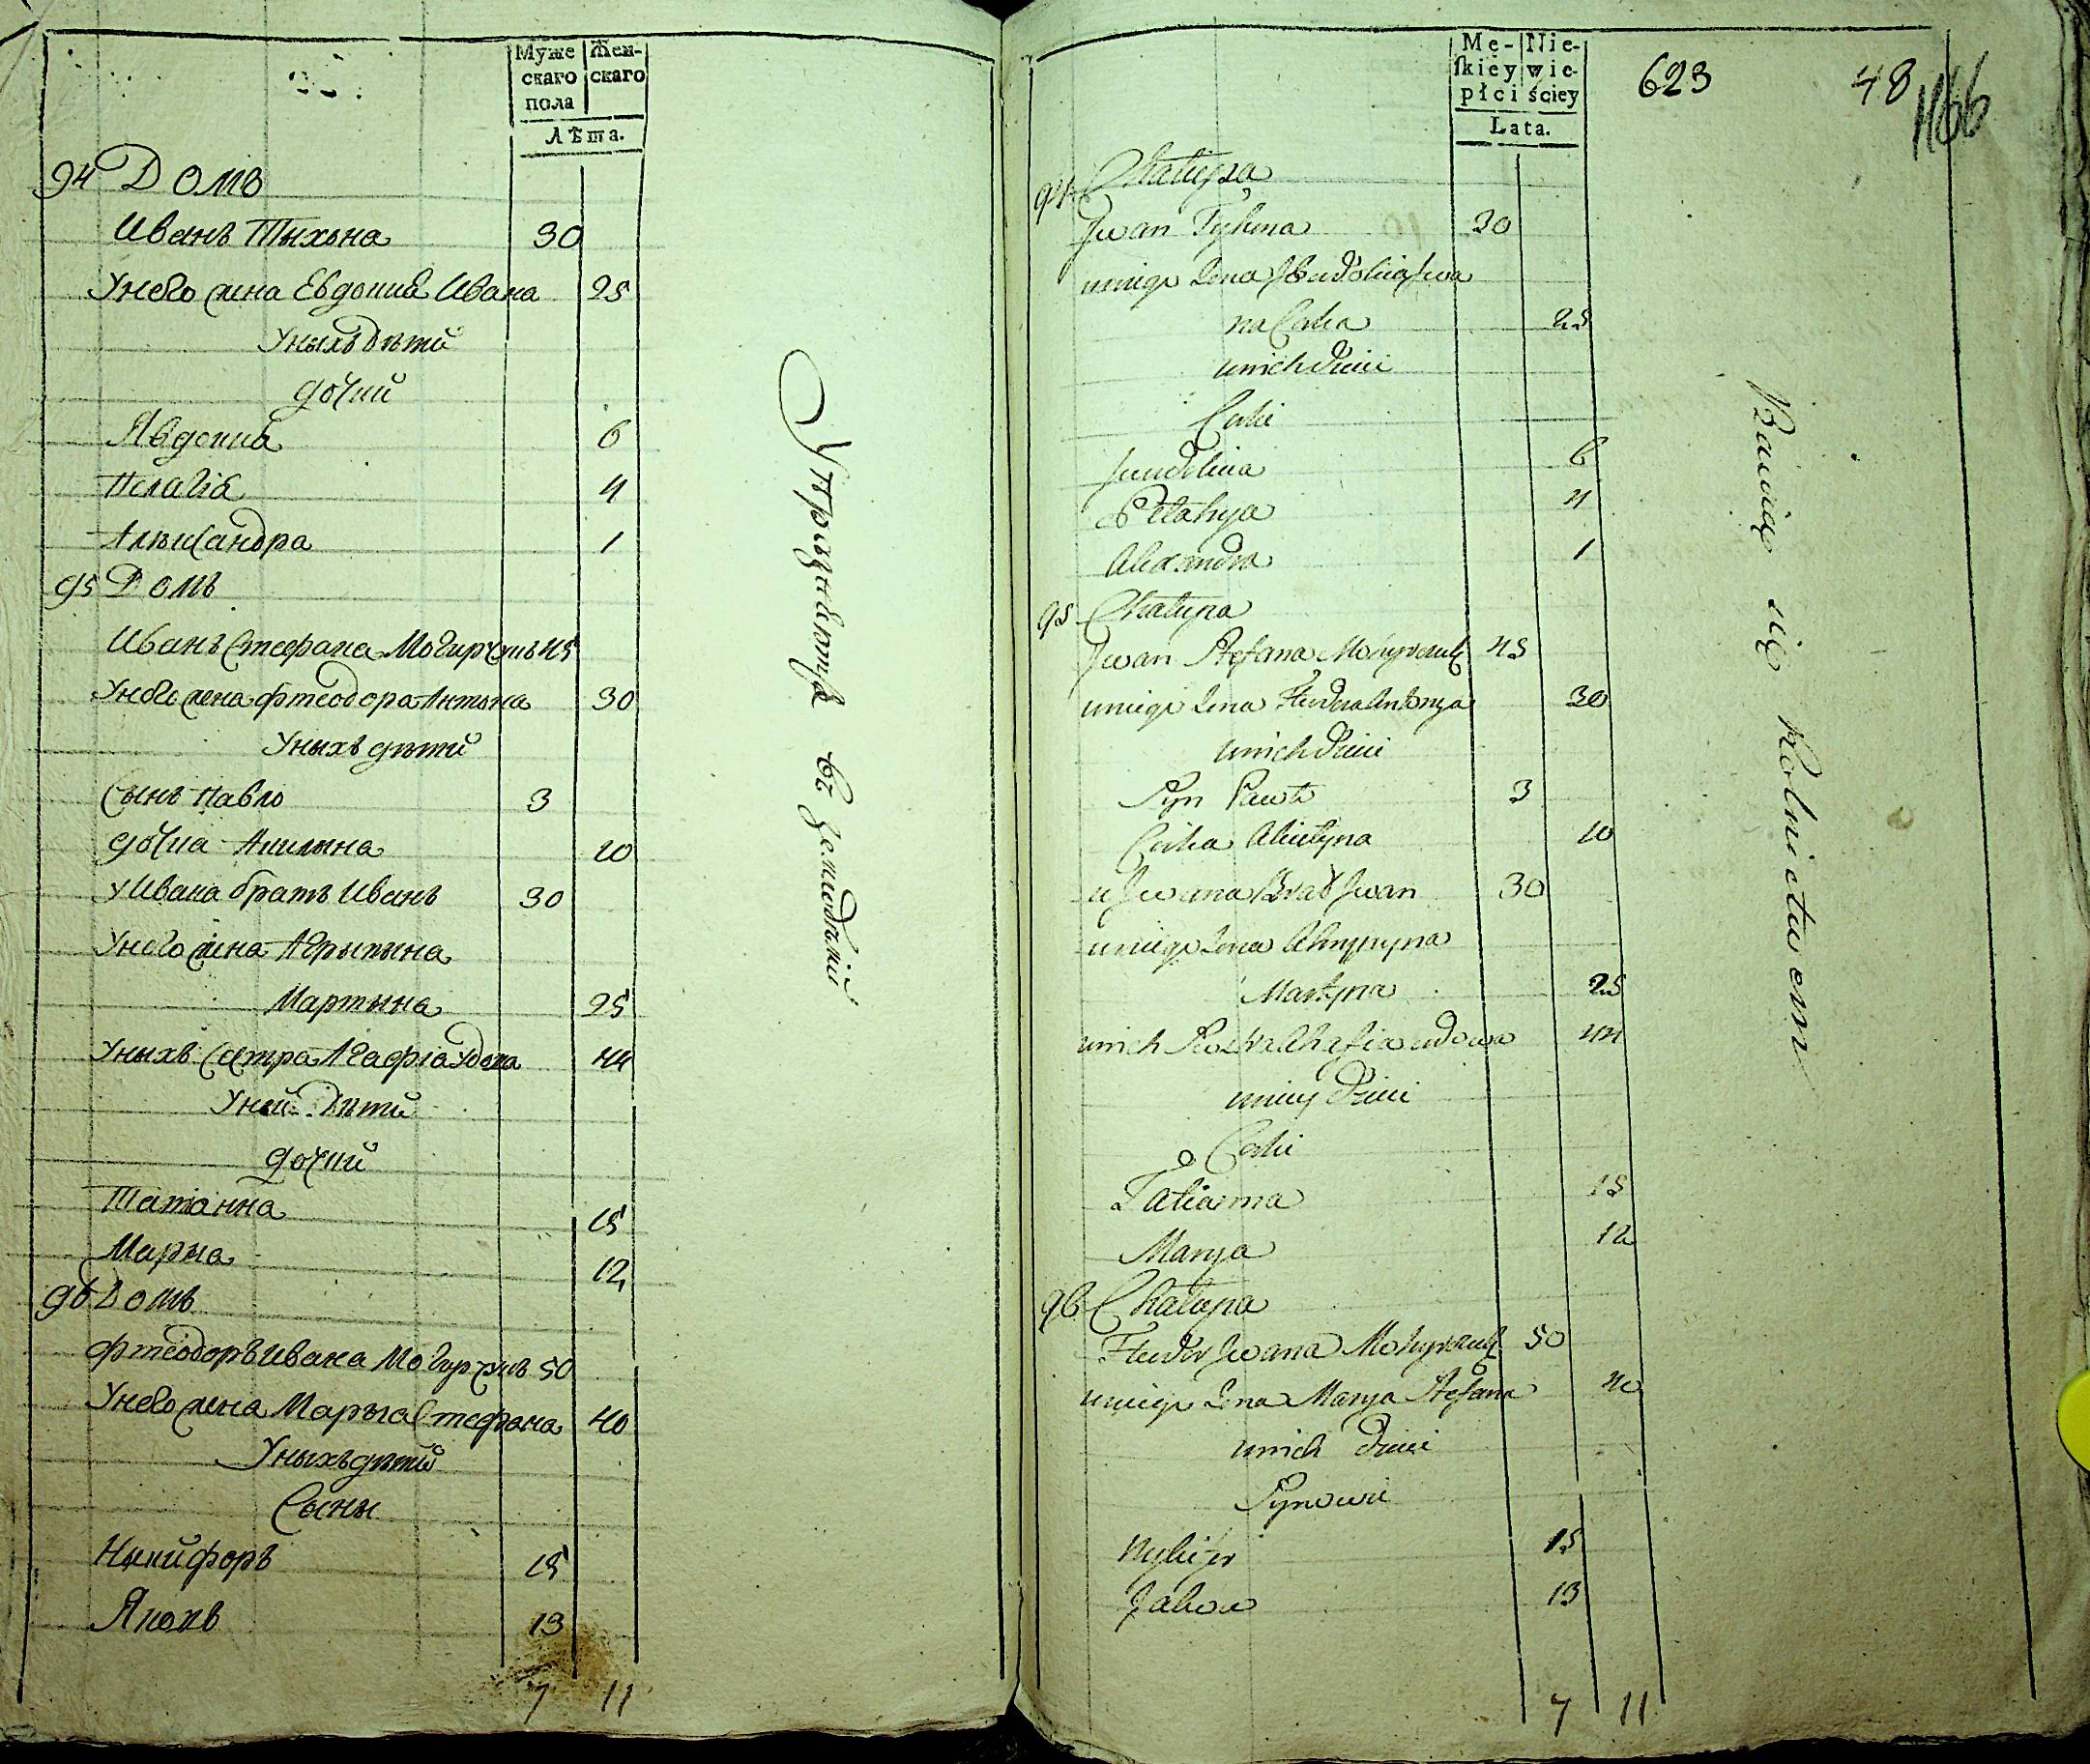 Муже
скаго
пола
Жен-
скаго
Лѣта.
94 Домъ
Иванъ Тыхона 30
Унего жена Евдокиа Ивана 25
Уныхъ дѣти
дочки
Явдокиа 6
Пелагіа 4
Алеѯандра 1
95 Домъ
Иванъ Стефана Могирчукъ 45
Унего жена Фтеодора Антона 30
Уныхъ дѣти
Сынъ Павло 3
дочка Акилына 10
У Ивана братъ Иванъ 30
Унего жена Агрыпына
Мартына 25
Уныхъ Сестра Агафіа Удова 44
Уней дѣти
дочки
Татіанна 15
Марыа 12
96 Домъ
Фтеодоръ Ивана Могирчукъ 50
Унего жена Марыа Стефана 40
Уныхъ дѣти
Сыны
Никифоръ 15
Яковъ 13
7 11
Упражняются въ земледѣліи
Mę-
ſkiey
płci
Nie-
wie-
ściey
Lata.
623
48
1166
94 Chałupa
Jwan Tychona 30
uniego żona Jewdokia Jwa
na Corka 25
unich dzieci
Corki
Jewdokia 6
Pelahya 4
Alexandra 1
95 Chałupa
Jwan Stefana Mohyrczuk 45
uniego żona Fteodora Antonya 30
unich dzieci
Syn Pawło 3
Corka Akielyna 10
u Jwana Brat Jwan 30
uniego żona Ahrypyna
Martyna 25
unich Siostra Ahafia wdowa 44
uniey dzieci
Corki
Tatianna 15
Marya 12
96 Chałupa
Fteodor Jwana Mohyrczuk 50
uniego żona Marya Stefana 40
unich dzieci
Synowie
Nykifor 15
Jakow 13
7 11
Bawią się Rolnictwem